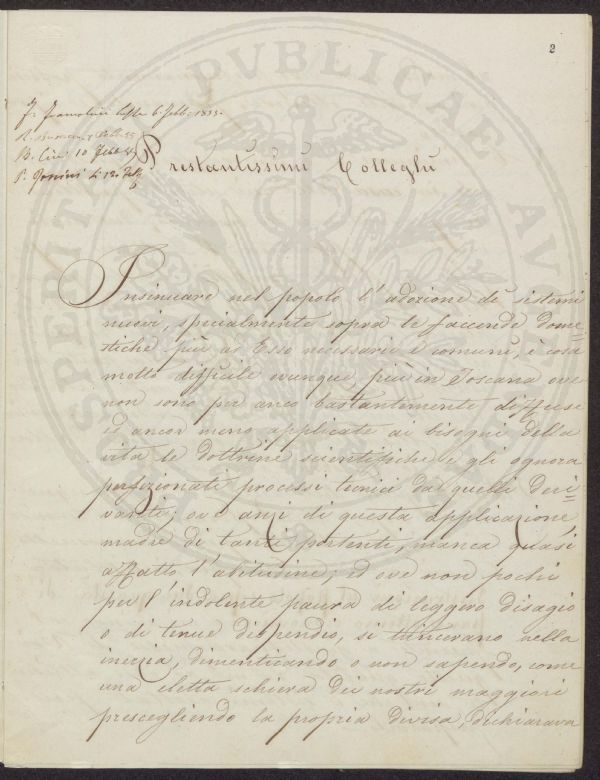 2
lesse 6. Febb. 1855.
B. 10 Febb
Prestantissimi Colleghi
Insinuare nel popolo l'adozione di sistemi
nuovi, specialmente sopra le faccende dome=
stiche più ad Esso necessarie e comuni, è cosa
molto difficile ovunque, più in Toscana ove
non sono per anco bastantemente diffuse
ed ancor meno applicate ai bisogni della
vita le dottrine scientifiche e gli ognora
perfezionati processi tecnici da quelli deri=
vanti; ove anzi di questa applicazione
madre di tanti portenti, manca quasi
affatto l'abitudine, ed ove non pochi
per l'indolente paura di leggero disagio
o di tenue dispendio, si trincerano nella
inerzia, dimenticando o non sapendo, come
una eletta schiera dei nostri maggiori
prescegliendo la propria divisa, dichiarava
PROSPERITATI PVBLICAE AVGENDAE